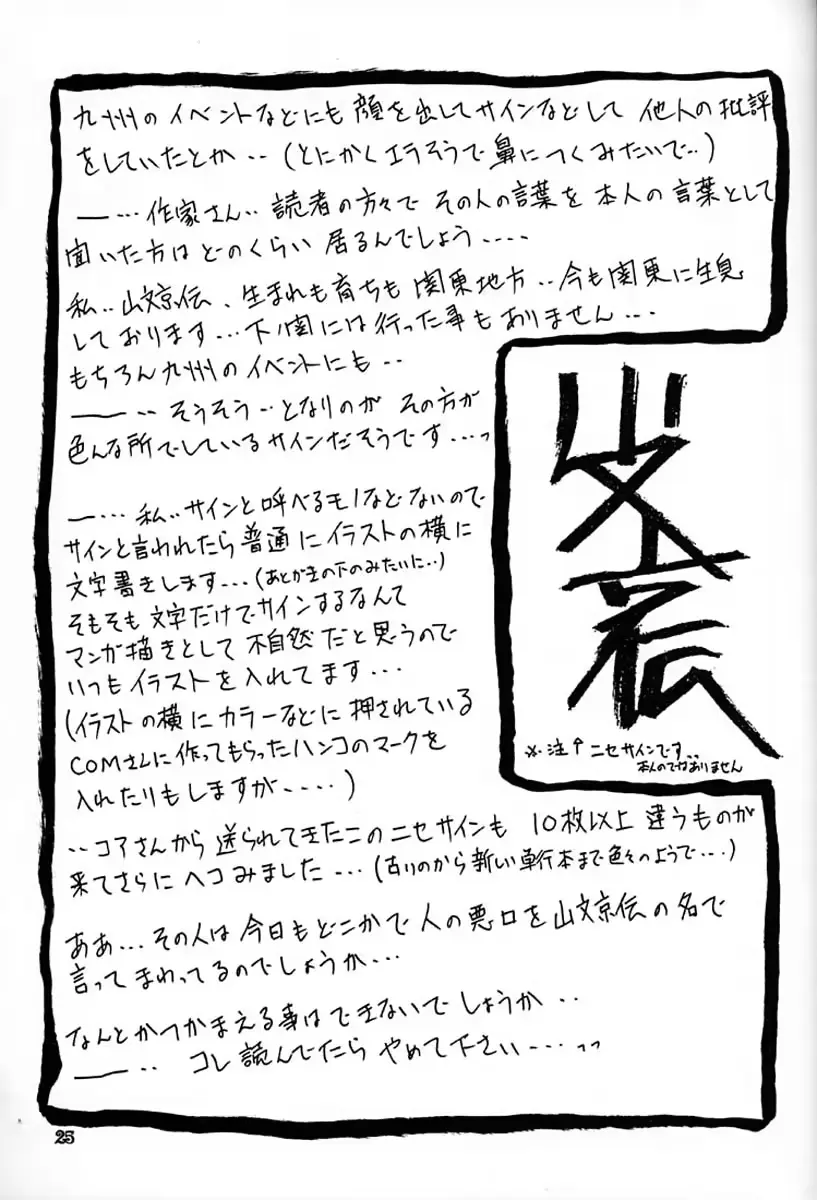 九州のイベントなどにも顔を出してサインなどして他人の批評
をしていたとか‥(とにかくエラそうで鼻につくみたいで‥)
―‥‥作家さん‥読者の方々でその人の言葉を本人の言葉として
聞いた方はどのくらい居るんでしょう‥‥
私‥山文京伝、生まれも育ちも関東地方‥今も関東に生息
しております‥‥下ノ関には行った事もありません‥‥
もちろん九州のイベントにも‥
―‥そうそう‥となりのがその方が
色んな所でしているサインだそうです‥‥っ
―‥‥私‥サインと呼べるモノなどないので
サインと言われたら普通にイラストの横に
文字書きします‥‥(あとがきの下のみたいに‥)
そもそも文字だけでサインするなんて
マンガ描きとして不自然だと思うので
いつもイラストを入れてます‥‥
(イラストの横にカラーなどに押されている
COMさんに作ってもらったハンコのマークを
入れたりもしますが‥‥)
山文京伝
※注↑ニセサインです‥
本人のではありません
‥コアさんから送られてきたこのニセサインも10枚以上違うものが
来てさらにヘコみました‥‥(古いのから新しい単行本まで色々のようで‥‥)
ああ‥‥その人は今日もどこかで人の悪口を山文京伝の名で
言ってまわってるのでしょうか‥‥
なんとかつかまえる事はできないでしょうか‥
―‥コレ読んでたらやめて下さい‥‥っっ
25